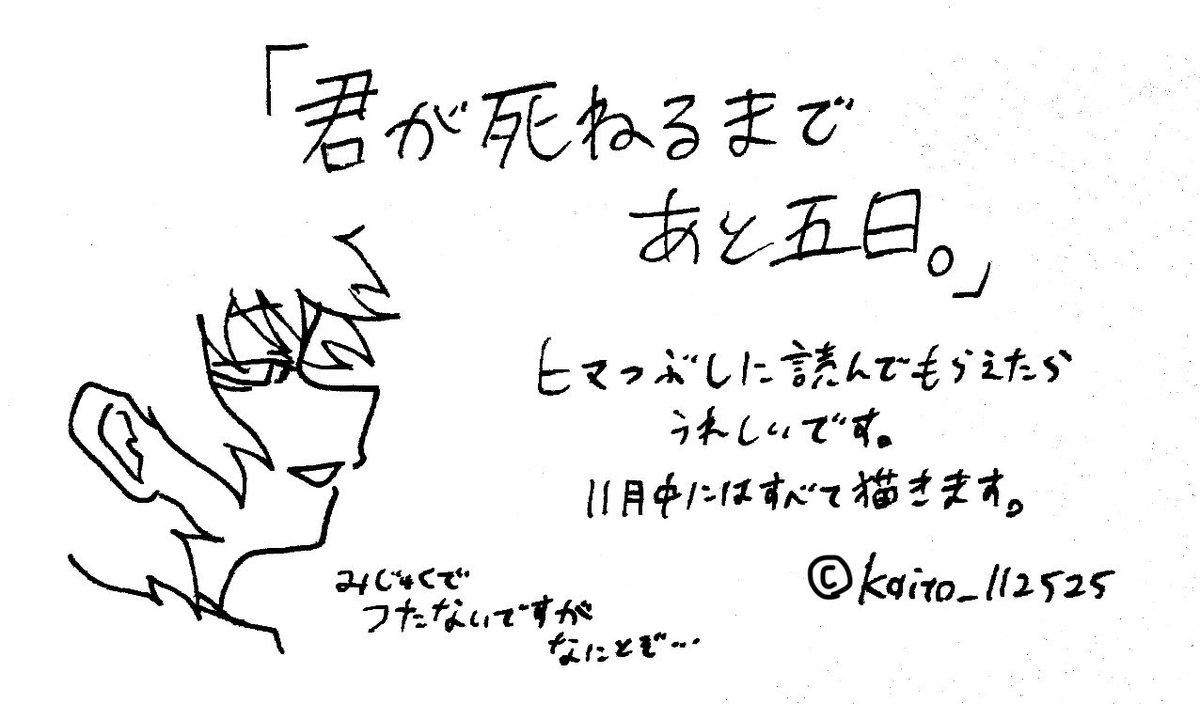 「君が死ねるまで
あと五日。」
ヒマつぶしに読んでもらえたら
うれしいです。
11月中にはすべて描きます。
©kaito_112525
みじゅくで
つたないですが
なにとぞ…